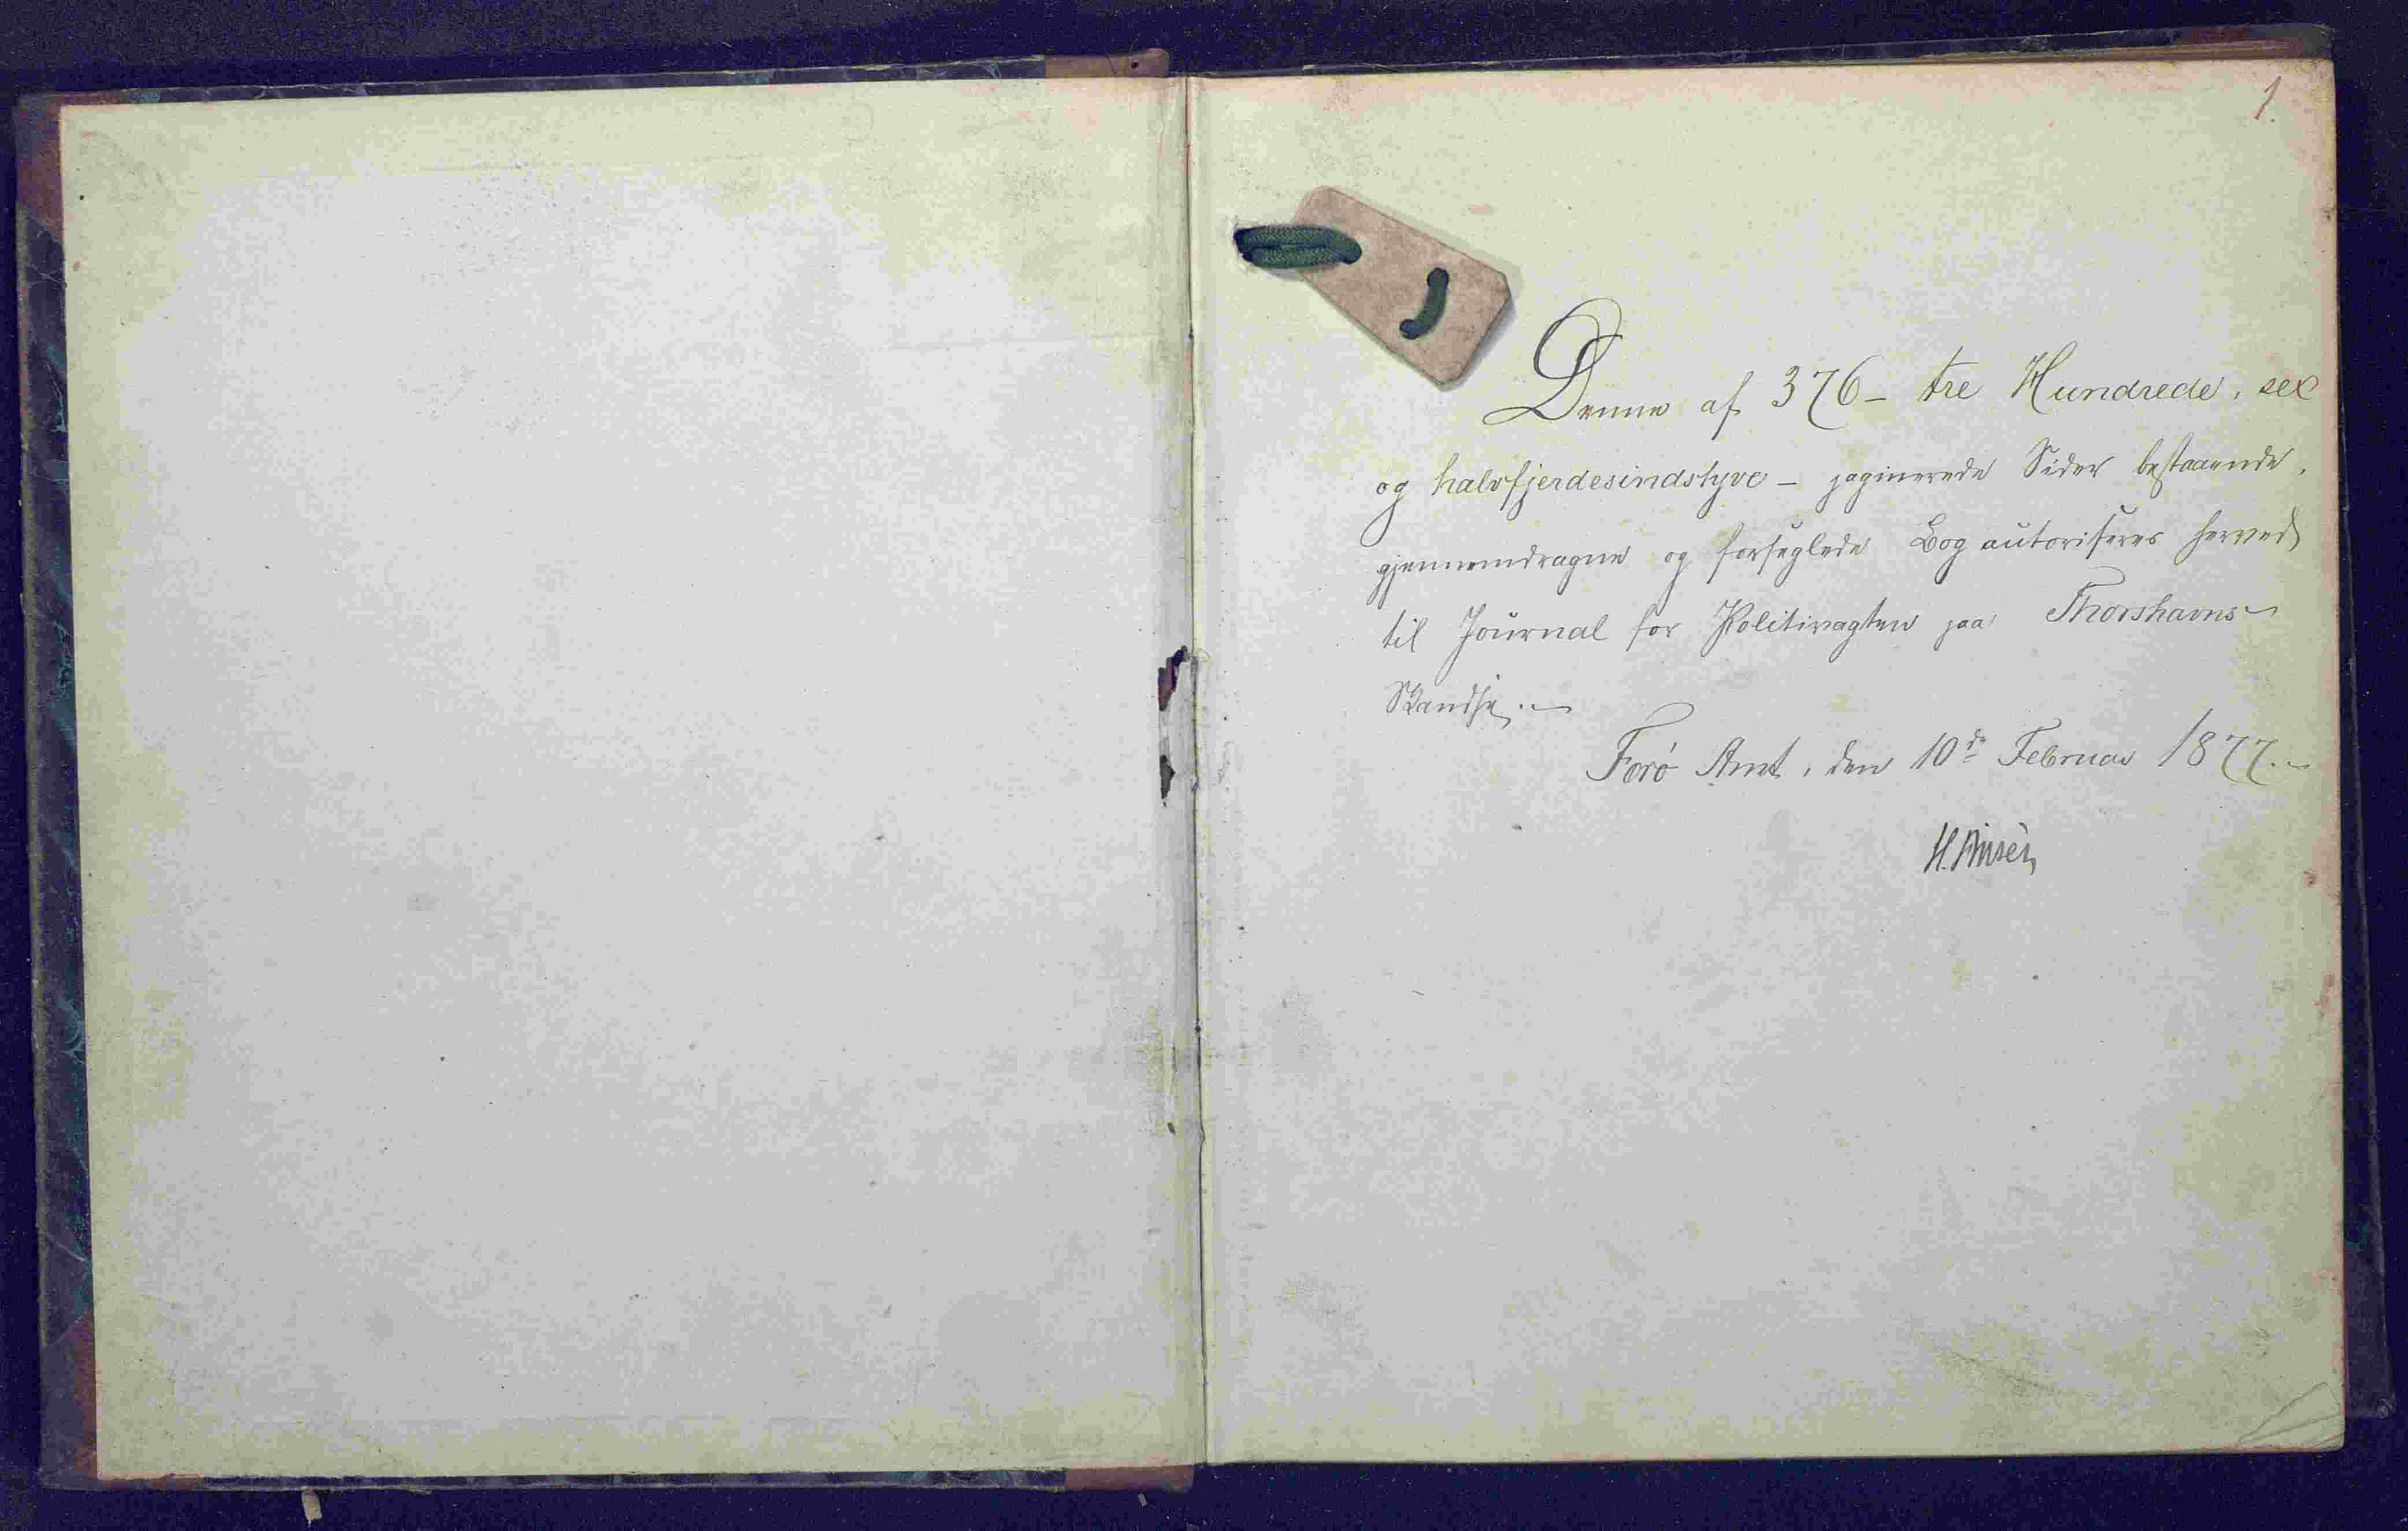 1.
Denne af 376 - tre Hundrede, sex
og halvfjerdesindstyve - paginerede Sider bestaaende,
gjennemdragne og forseglede Bog autoriseres herved
til Journal for Politivagten paa Thorshavns
Skandse. -
Færø Amt, den 10de Februar 1877. -
H.